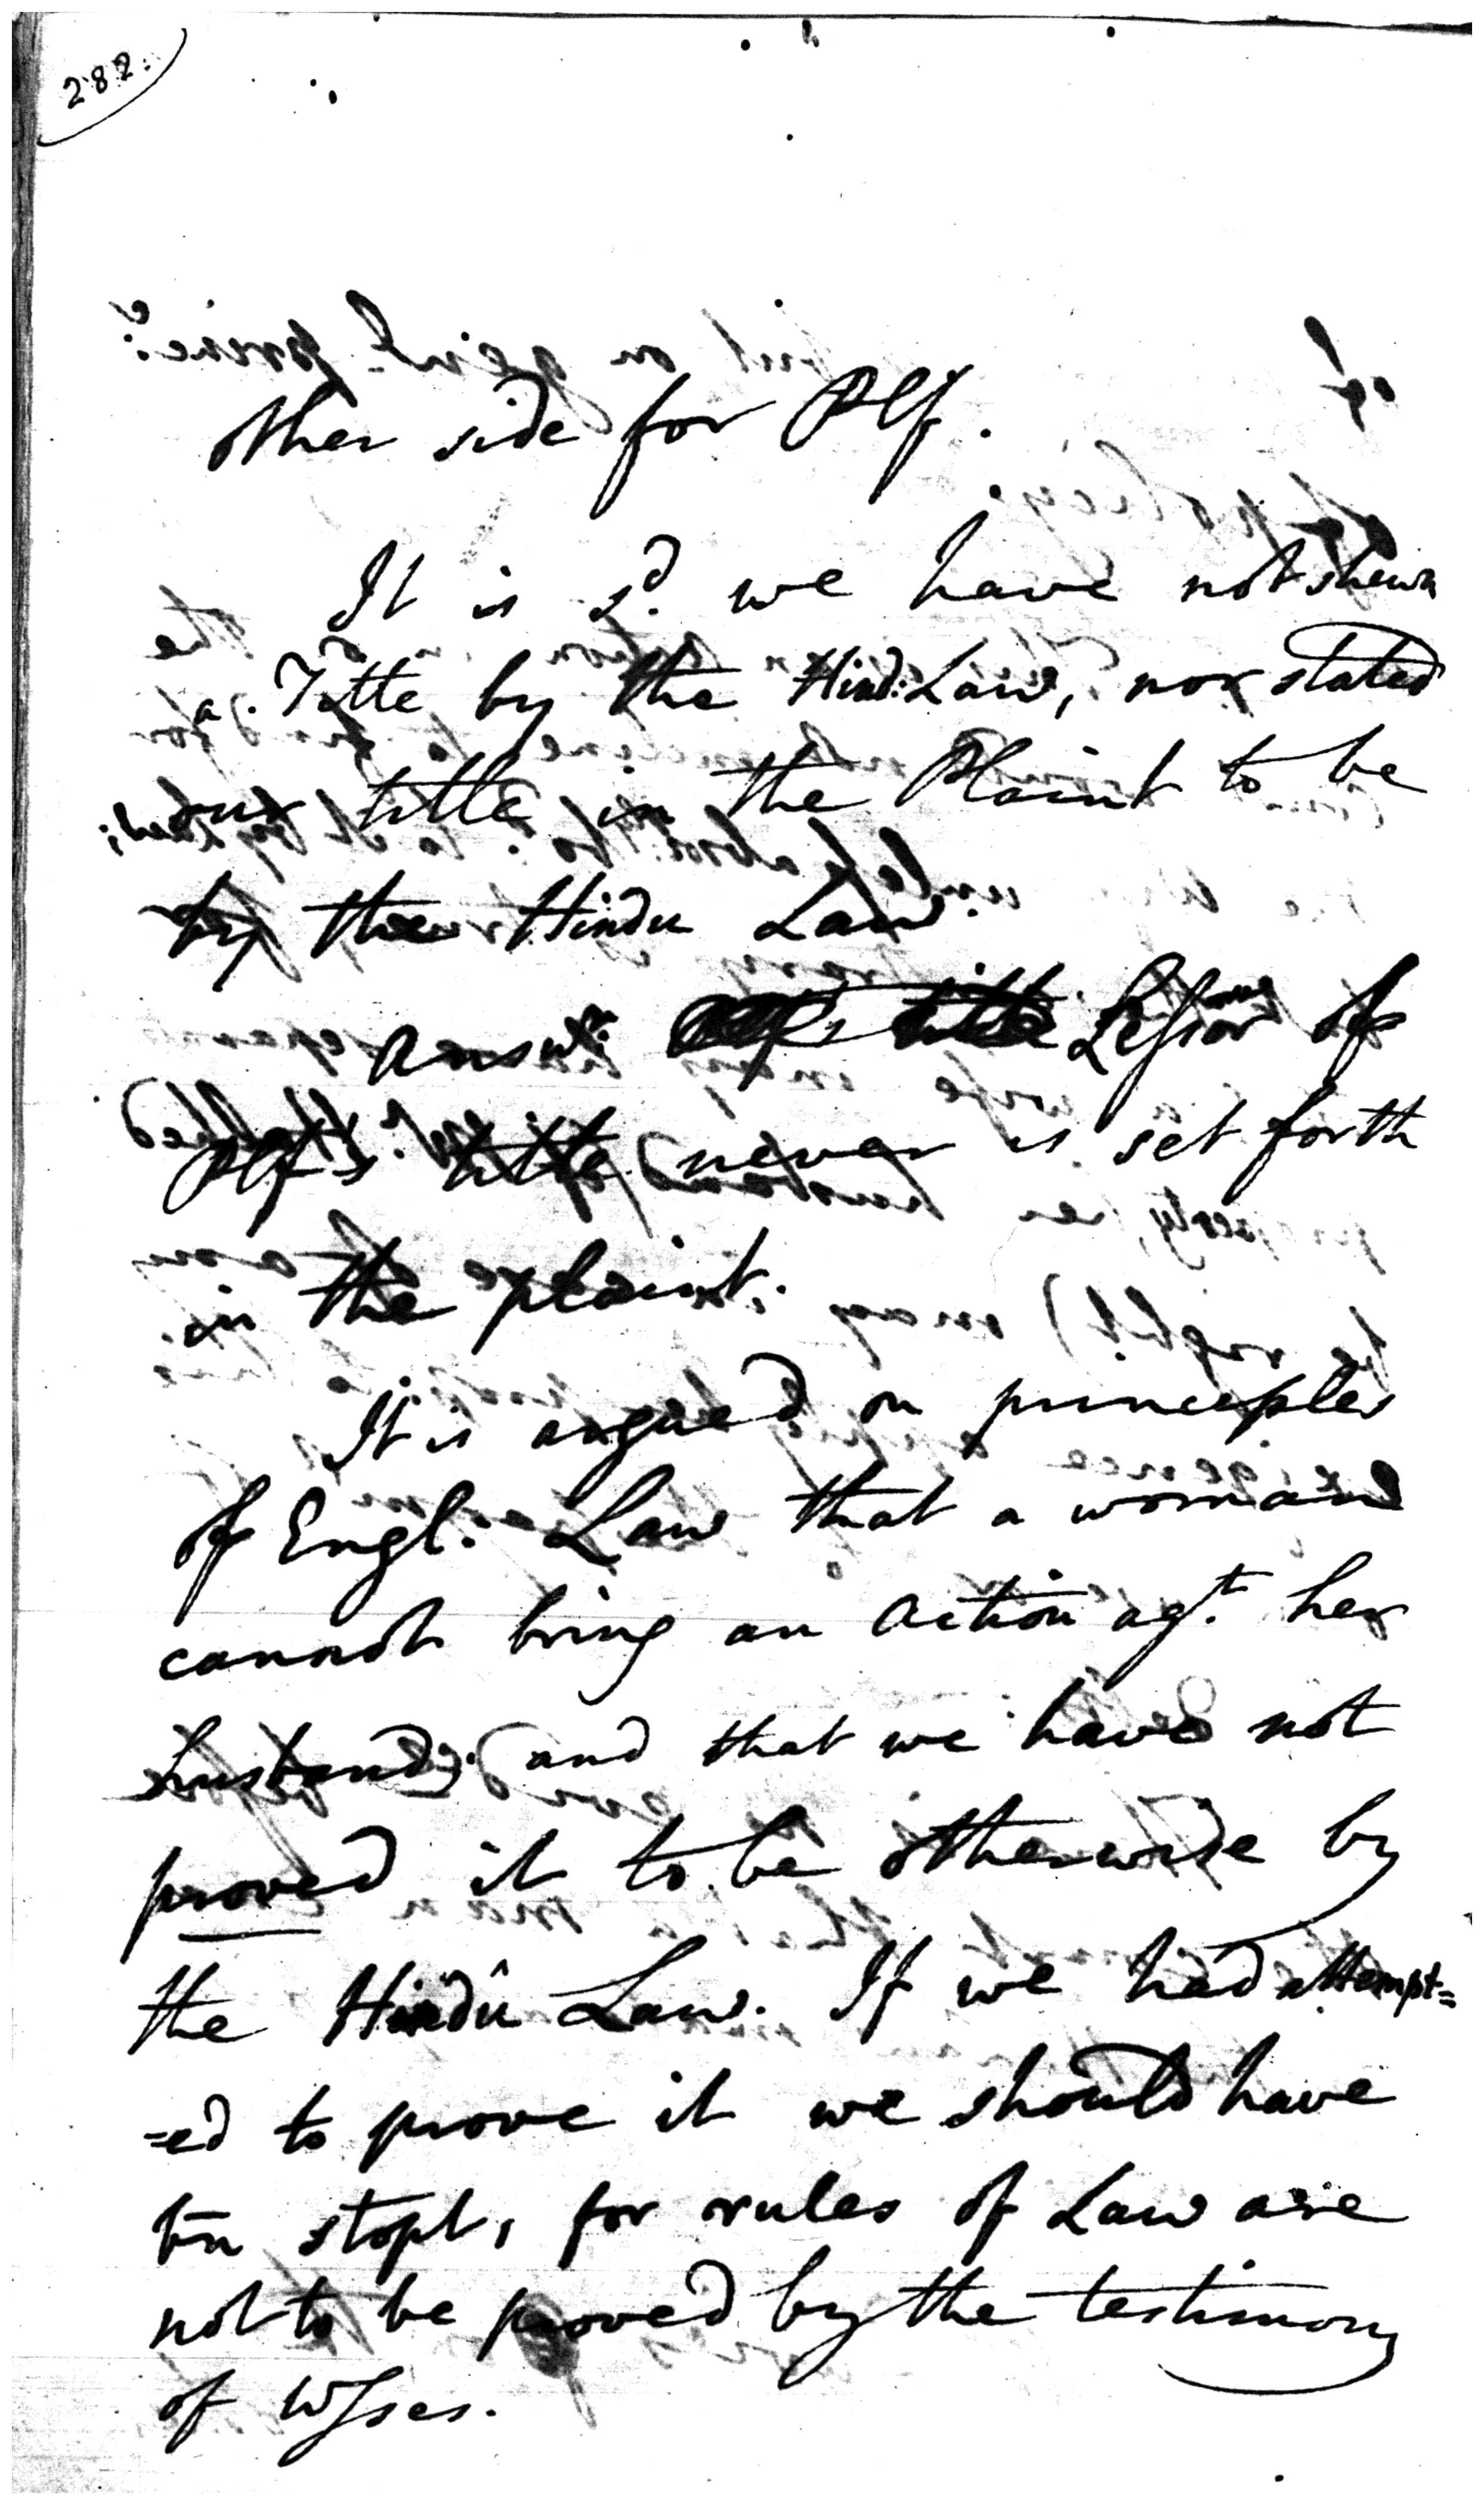 282.
other side for Plf.
It is sd. we have not shewn
a Title by the Hind: Law, nor stated
our title in the Plaint to be
by the Hindu Law.
Answr. Lessor of
Plf's title never is set forth
in the plaint.
It is argued on principles
of Engl: Law that a woman
cannot bring an action agt. her
husband; and that we have not
proved it to be otherwise by
the Hindû Law. If we had attempt=
=ed to prove it we should have
bn stopt, for rules of Law are
not to be proved by the testimony
of Wsses.